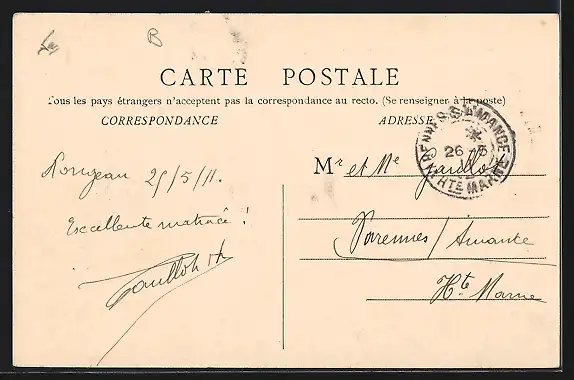 B
CARTE POSTALE
Tous les pays étrangers n'acceptent pas la correspondance au recto. (Se renseigner à la poste)
CORRESPONDANCE
ADRESSE
VARENNES S. AMANCE
26 - 5
HTE MARNE
25/5/11.
Mr et Me
Excellente matinée !
Varennes / Amance
Hte Marne